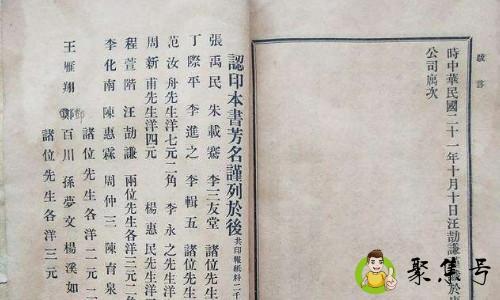 時中華民國二十一年十月十日汪劼謙
公司寓次
認印本書芳名謹列於後 共印報紙料二千
張禹民 朱載騫 李三友堂
丁際平 李進之 李輯五 諸位先生
范汝舟先生洋七元二角 李永之先生
周新甫先生洋四元 楊惠民先生洋
程萱階 汪劼謙 兩位先生各洋三元二角
李化南 陳惠霖 周仲三 陳育泉
諸位先生各洋二元二
王雁翔 百川 孫夢文 楊漢如
諸位先生各洋三元
聚集号